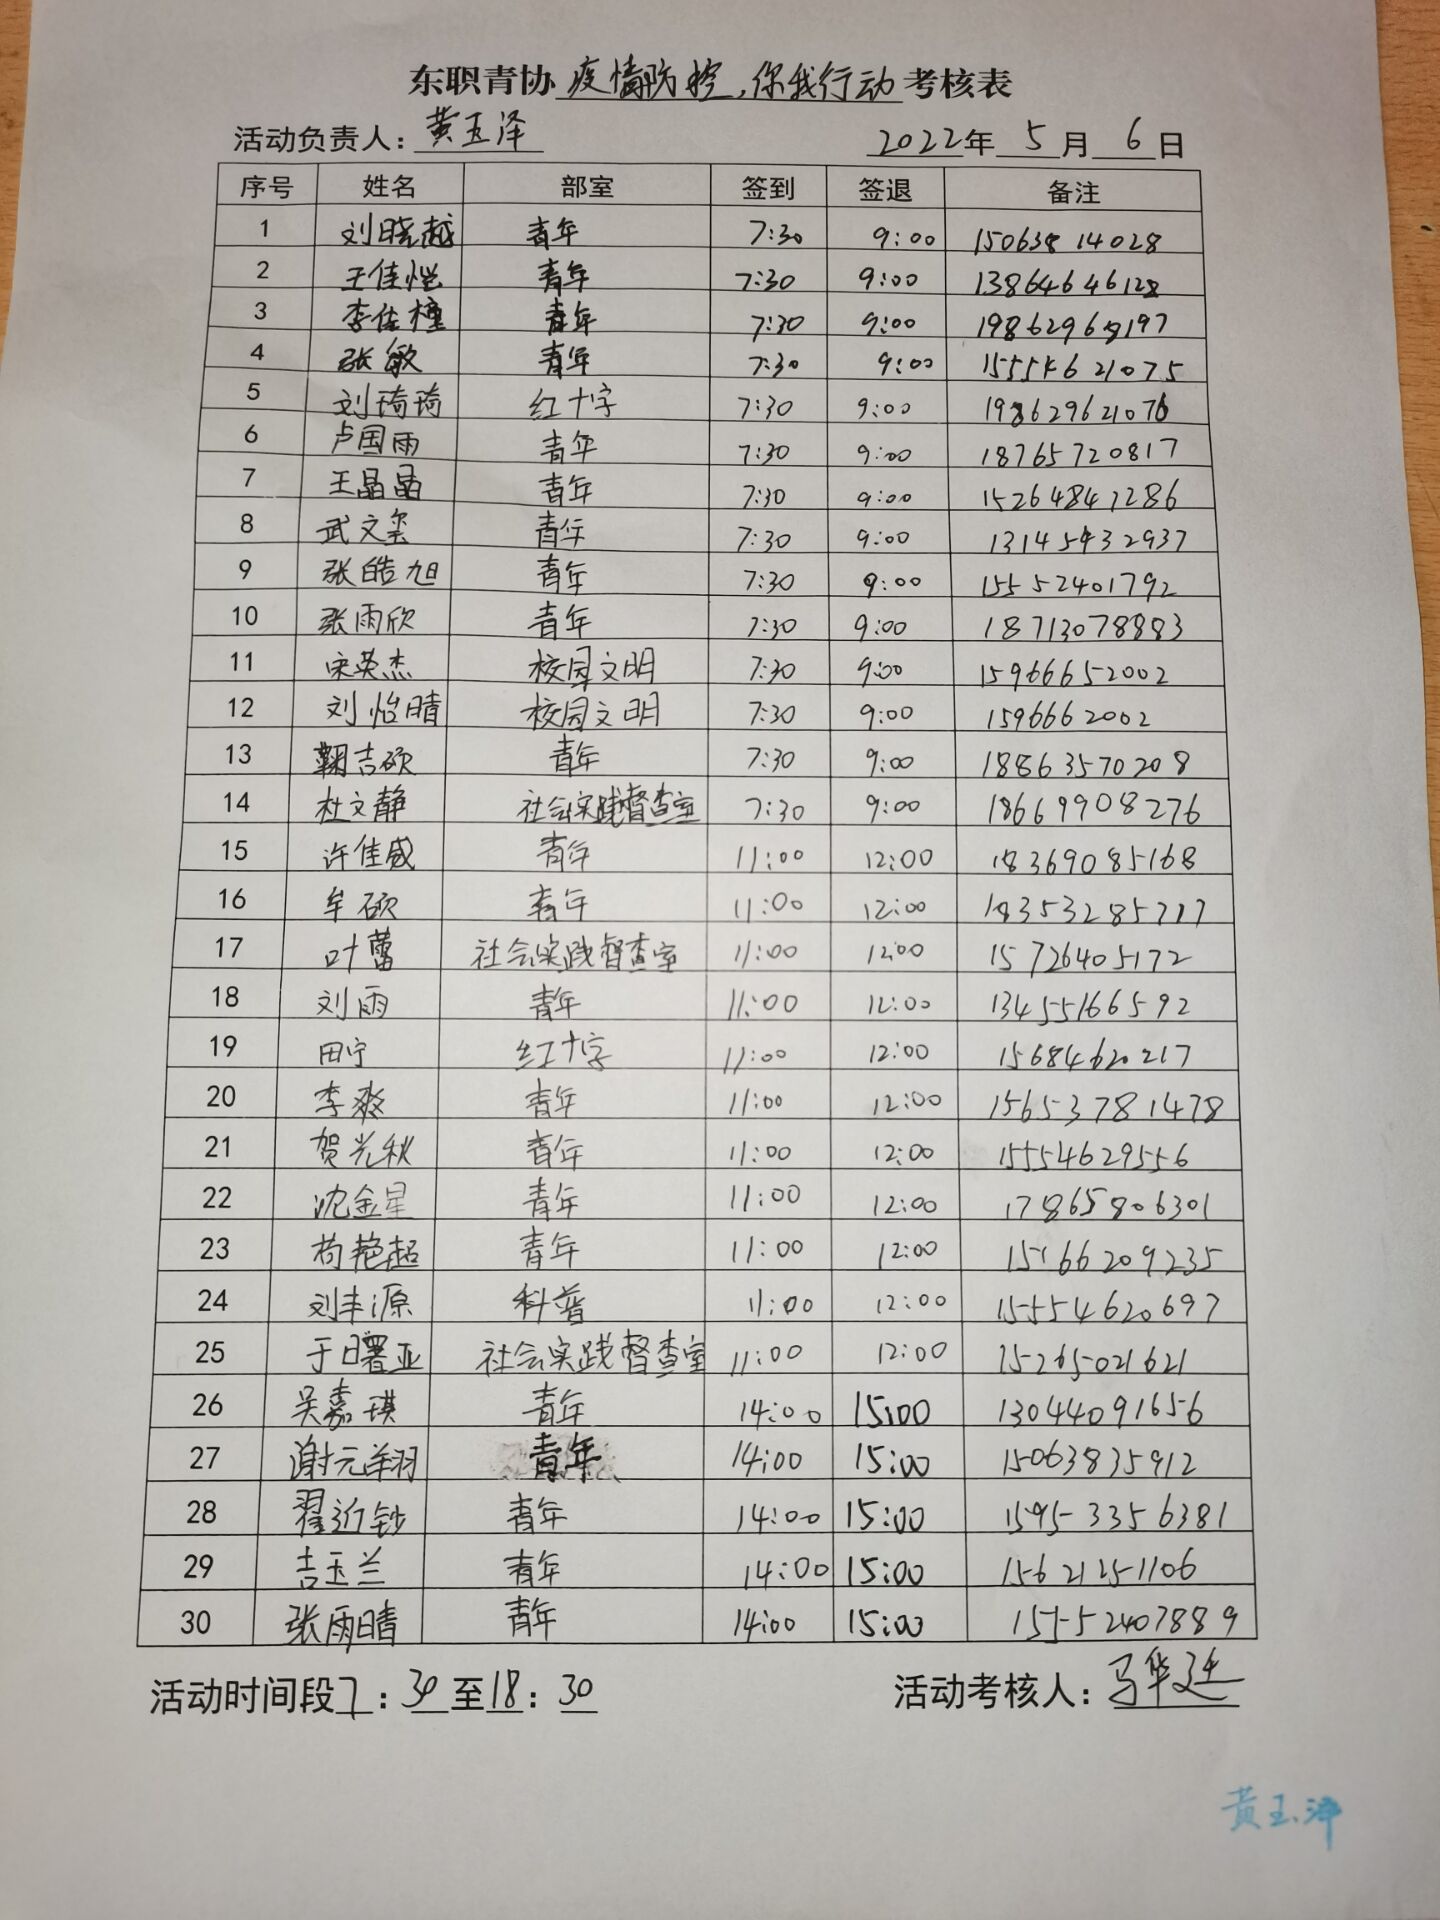 东职青协 疫情防控,你我行动 考核表
活动负责人: 黄玉泽 2022年 5月 6日
序号 姓名 部室 签到 签退 备注
1 刘晓越 青年 7:30 9:00 15063814028
2 王佳恺 青年 7:30 9:00 13864646128
3 李佳橦 青年 7:30 9:00 19862968197
4 张敏 青年 7:30 9:00 15554621075
5 刘琦琦 红十字 7:30 9:00 19862962076
6 卢国雨 青年 7:30 9:00 18765720817
7 王晶晶 青年 7:30 9:00 15264847286
8 武文玺 青年 7:30 9:00 13145432937
9 张皓旭 青年 7:30 9:00 15552401792
10 张雨欣 青年 7:30 9:00 18713078883
11 宋英杰 校园文明 7:30 9:00 15966652002
12 刘怡晴 校园文明 7:30 9:00 1596662002
13 鞠吉硕 青年 7:30 9:00 18863570208
14 杜文静 社会实践督查室 7:30 9:00 18669908276
15 许佳盛 青年 11:00 12:00 18369085168
16 牟硕 青年 11:00 12:00 18353285717
17 叶蕾 社会实践督查室 11:00 12:00 15726405172
18 刘雨 青年 11:00 12:00 13455166592
19 田宁 红十字 11:00 12:00 15684620217
20 李爽 青年 11:00 12:00 15653781478
21 贺光秋 青年 11:00 12:00 15554629556
22 沈金星 青年 11:00 12:00 17865806301
23 苟艳超 青年 11:00 12:00 15166209235
24 刘丰源 科普 11:00 12:00 15554620697
25 于曙亚 社会实践督查室 11:00 12:00 15265021621
26 吴嘉琪 青年 14:00 15:00 13044091656
27 谢元翔 青年 14:00 15:00 15063835912
28 翟近钞 青年 14:00 15:00 15953356381
29 吉玉兰 青年 14:00 15:00 15621251106
30 张雨晴 青年 14:00 15:00 15552407889
活动时间段 7:30至18:30 活动考核人: 马华廷
黄玉泽